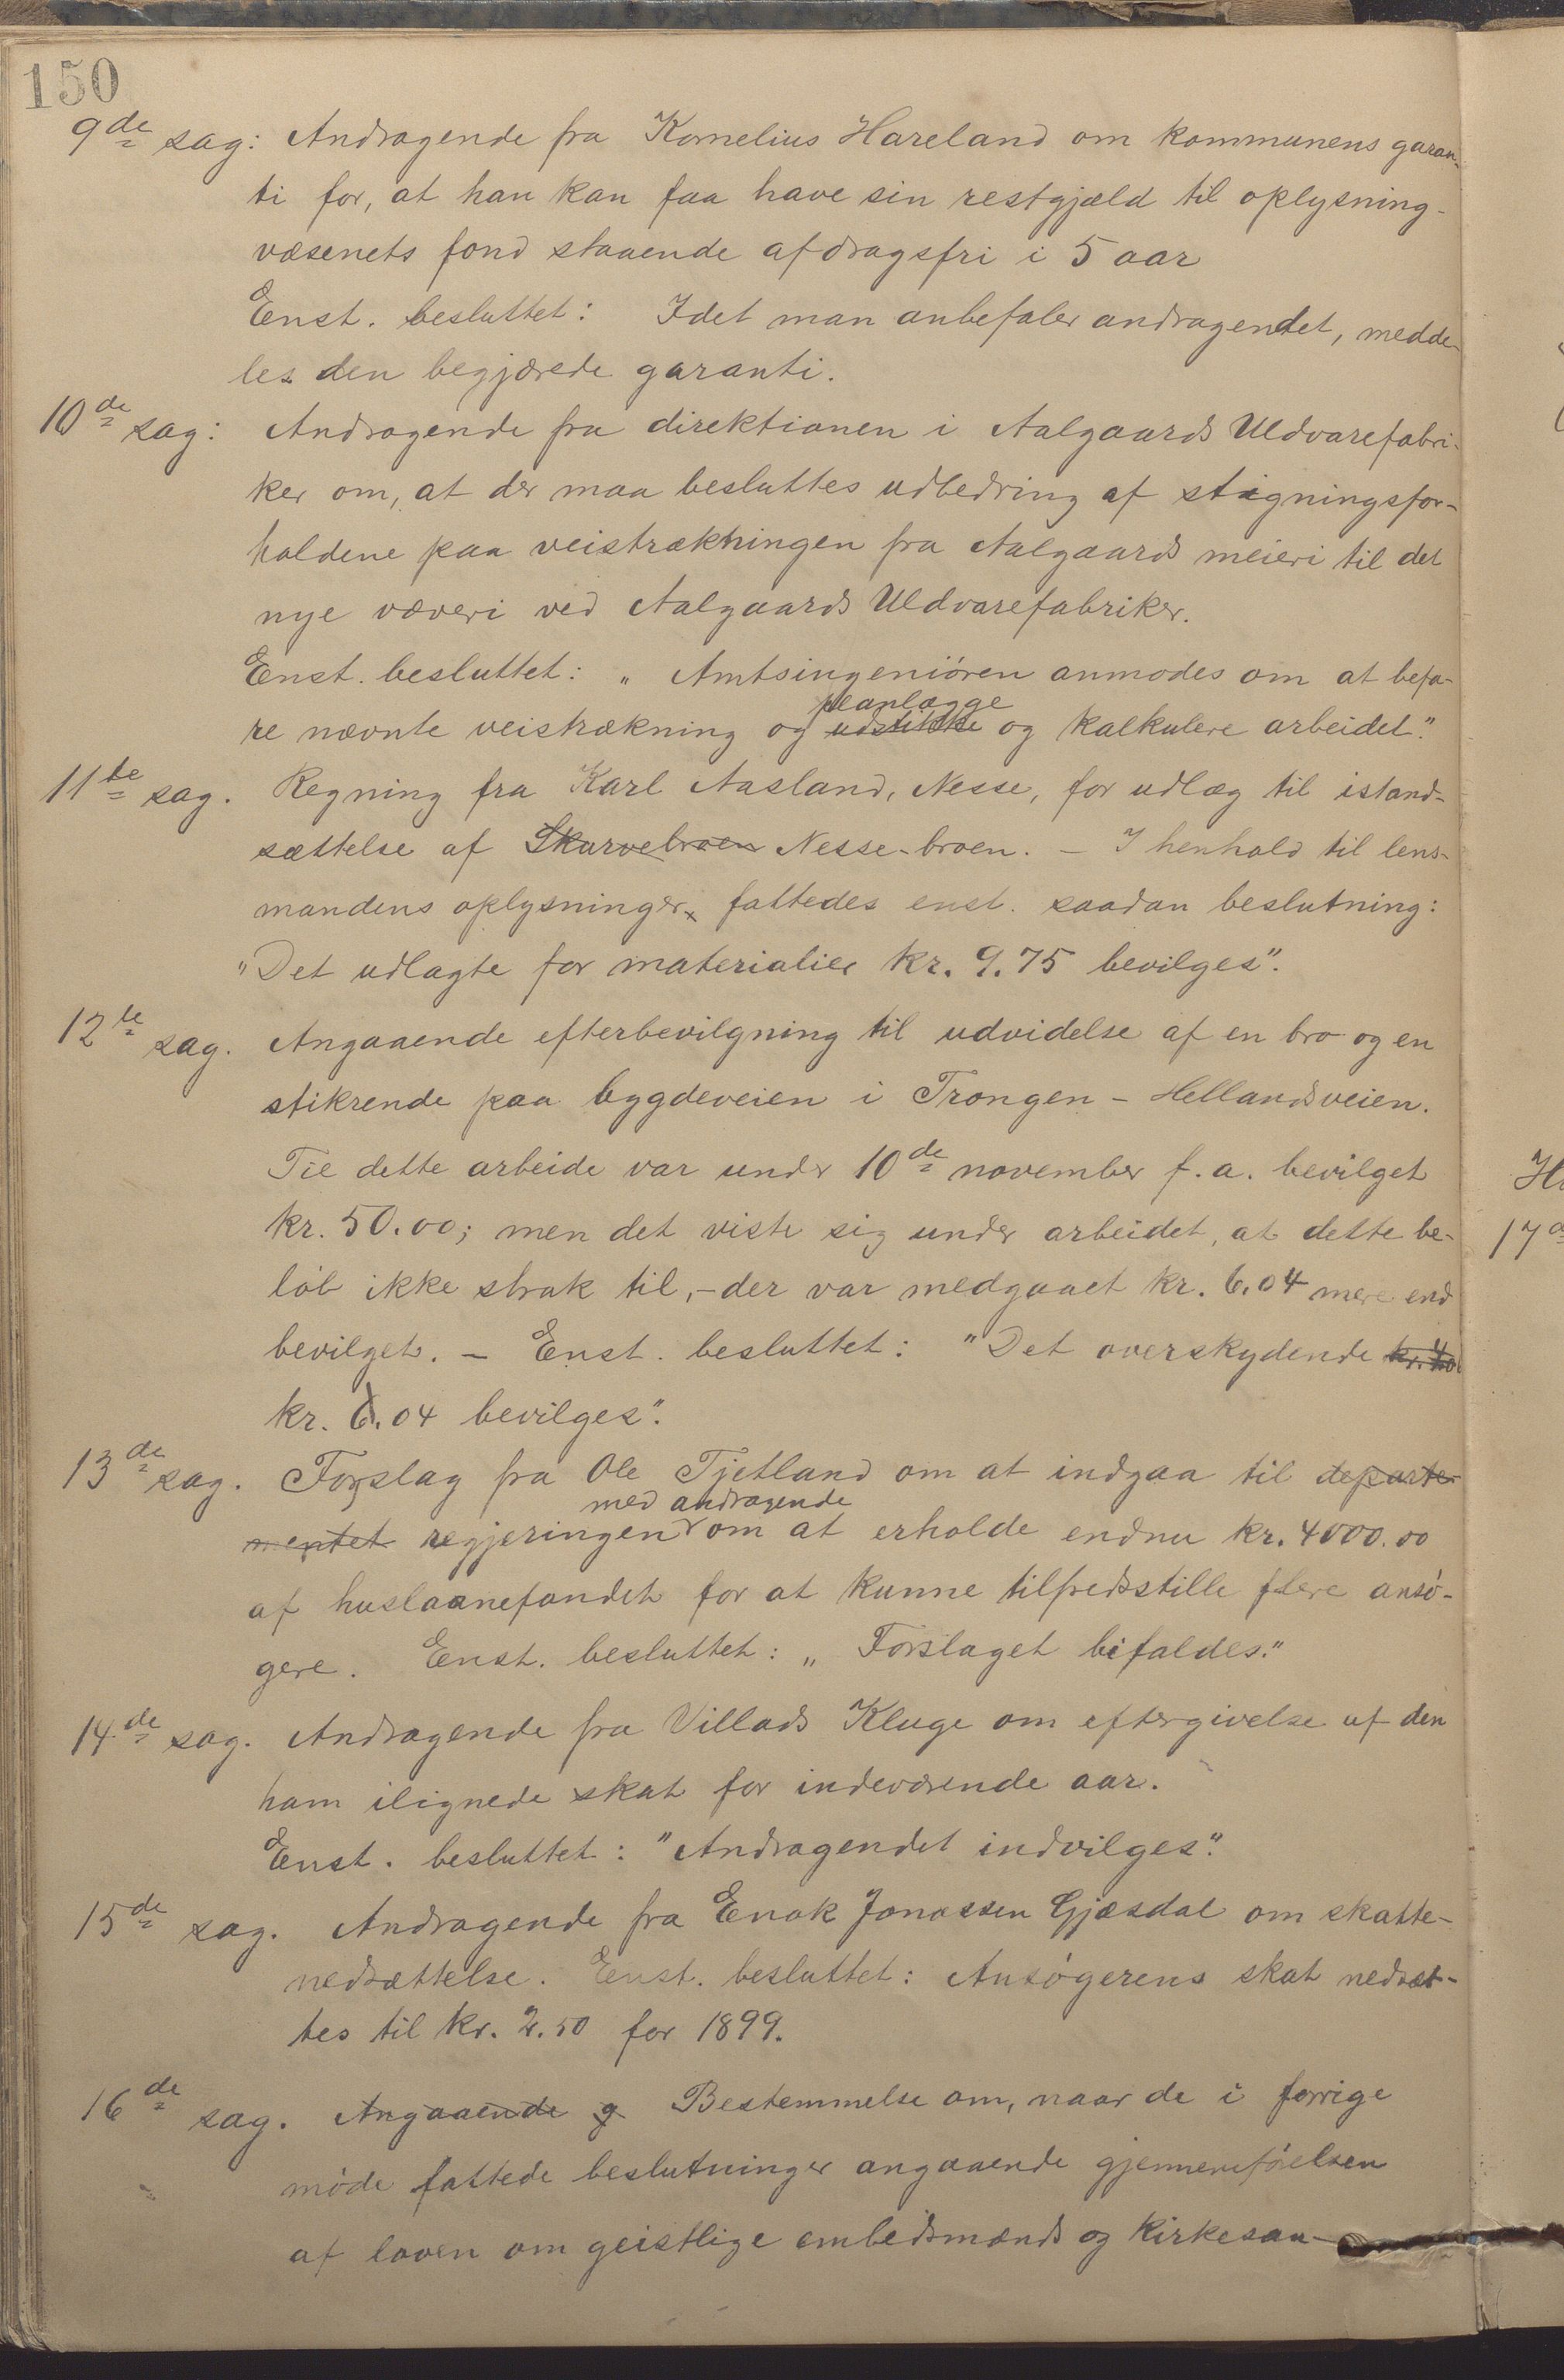 150
9de sag: Andragende fra Kornelius Hareland om kommunens garan-
ti for, at han kan faa have sin restgjæld til oplysning-
væsenets fond staaende afdragsfri i 5 aar
Enst. besluttet: Idet man anbefaler andragendet, medde-
les den begjærede garanti.
10de sag: Andragende fra direktionen i Aalgaards Uldvarefabri-
ker om, at der maa besluttes udbedring af stigningsfor-
holdene paa veistrækningen fra Aalgaards meieri til det
nye væveri ved Aalgaards Uldvarefabriker.
Enst. besluttet: „ Amtsingeniøren anmodes om at befa-
planlægge
re nævnte veistrækning og udstikke og kalkulere arbeidet."
11te sag. Regning fra Karl Aasland, Nesse, for udlæg til istand-
sættelse af Skurvebroen Nesse-broen. — I henhold til lens-
mandens oplysninger fattedes enst. saadan beslutning:
"Det udlagte for materialier kr. 9.75 bevilges".
12te sag. Angaaende efterbevilgning til udvidelse af en bro og en
stikrende paa bygdeveien i Trongen - Hellandsveien.
Til dette arbeide var under 10de november f.a. bevilget
kr. 50.00; men det viste sig under arbeidet, at dette be-
løb ikke strak til, - der var medgaaet kr. 6.04 mere end
bevilget. — Enst. besluttet: "Det overskydende kr.
kr. 6.04 bevilges".
13de sag. Forslag fra Ole Tjetland om at indgaa til departe-
med andragende
mentet regjeringen om at erholde endnu kr. 4000.00
af huslaanefondet for at kunne tilfredsstille flere ansø-
gere. Enst. besluttet: „ Forslaget bifaldes."
14de sag. Andragende fra Villads Kluge om eftergivelse af den
ham ilignede skat for indeværende aar.
Enst. besluttet: "Andragendet indvilges".
15de sag. Andragende fra Enok Jonassen Gjæsdal om skatte-
nedsættelse. Enst. besluttet: Ansøgerens skat nedsæt-
tes til kr. 2.50 for 1899.
16de sag. Angaaende g Bestemmelse om, naar de i forrige
møde fattede beslutninger angaaende gjennemføelsen
af loven om geistlige embedsmænds og kirkesan-
17